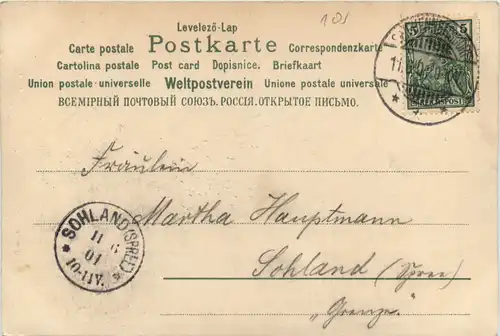 Levelező-Lap
Carte postale Postkarte Correspondenzkarte
Cartolina postale Post card Dopisnice. Briefkaart
Union postale universelle Weltpostverein Unione postale universale
ВСЕМІРНЫЙ ПОЧТОВЫЙ СОЮЗЪ. РОССІЯ. ОТКРЫТОЕ ПИСЬМО.
5
Fräulein
Martha Hauptmann
Sohland (Spree)
„Grenze."
SOHLAND (SPREE)
11 6
01
10-11V.